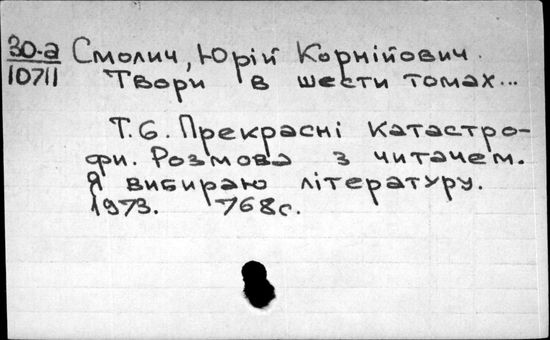 30-а Смолич, Юрій Корнійович.
10711 Твори в шести томах...
Т. 6. Прекрасні катастро-
фи. Розмова з читачем.
Я вибираю літературу.
1973. 768с.